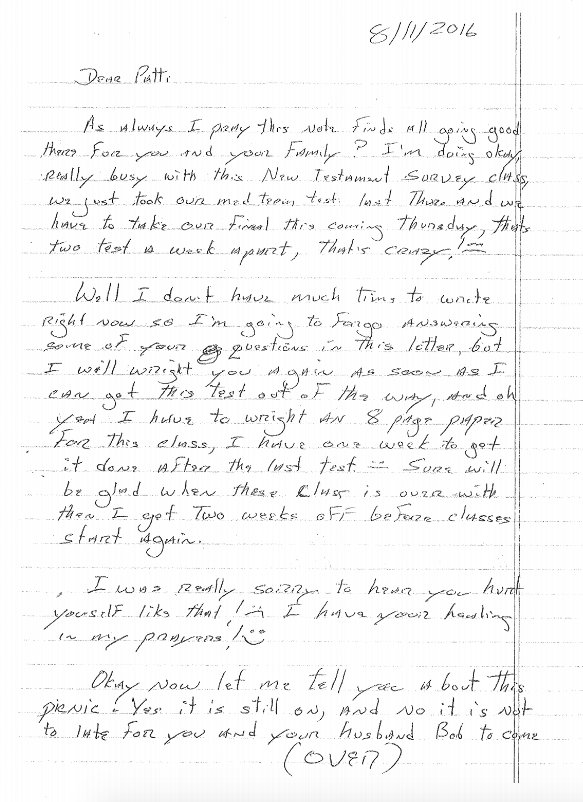 8/11/2016
Dear Patti
As always I pray this note finds all going good
there for you and your family? I'm doing okay,
really busy with this New Testament Survey class,
we just took our med tream test last Thurs and we
have to take our final this coming Thursday, thats
two test a week apart, that's crazy!
Well I don't have much time to write
right now so I'm going to forgo answering
some of your questions in this letter, but
I will wright you again as soon as I
can get this test out of the way, and oh
yea I have to wright an 8 page paper
for this class, I have one week to get
it done after the last test. Sure will
be glad when these class is over with
then I get two weeks off before classes
start again.
I was really sorry to hear you hurt
yourself like that! I have your healing
in my prayers!
Okay now let me tell you about this
picnic. Yes it is still on, and no it is not
to late for you and your husband Bob to come
(OVER)